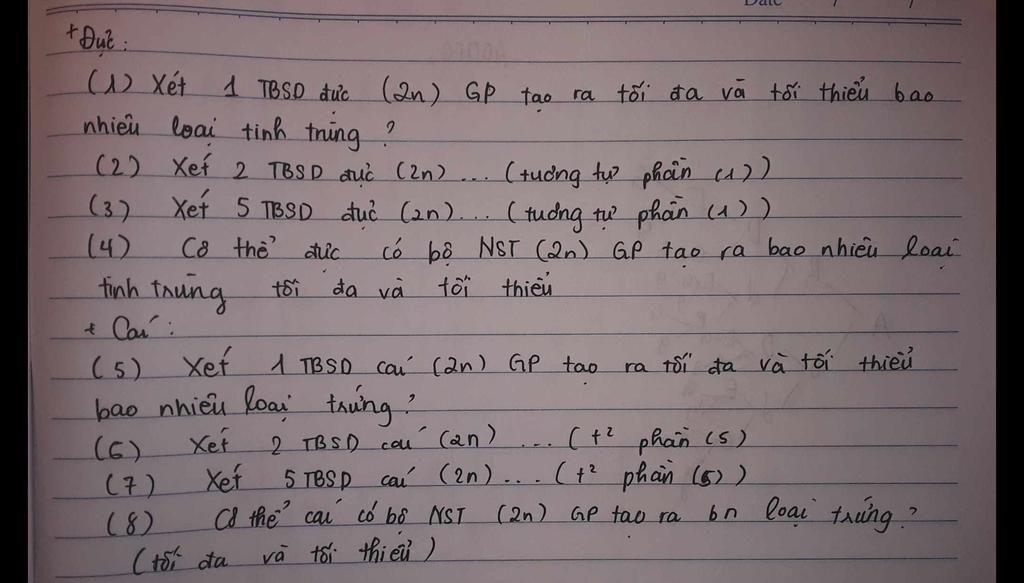 Date / /
+ Đực:
(1) Xét 1 TBSD đực (2n) GP tạo ra tối đa và tối thiểu bao
nhiêu loại tinh trùng?
(2) Xét 2 TBSD đực (2n) ... (tương tự phần (1))
(3) Xét 5 TBSD đực (2n)... (tương tự phần (1))
(4) Cơ thể đực có bộ NST (2n) GP tạo ra bao nhiêu loại
tinh trùng tối đa và tối thiểu
+ Cái:
(5) Xét 1 TBSD cái (2n) GP tạo ra tối đa và tối thiểu
bao nhiêu loại trứng?
(6) Xét 2 TBSD cái (2n) ... (t² phần (5)
(7) Xét 5 TBSD cái (2n)... (t² phần (5))
(8) Cơ thể cái có bộ NST (2n) GP tạo ra bn loại trứng?
(tối đa và tối thiểu)